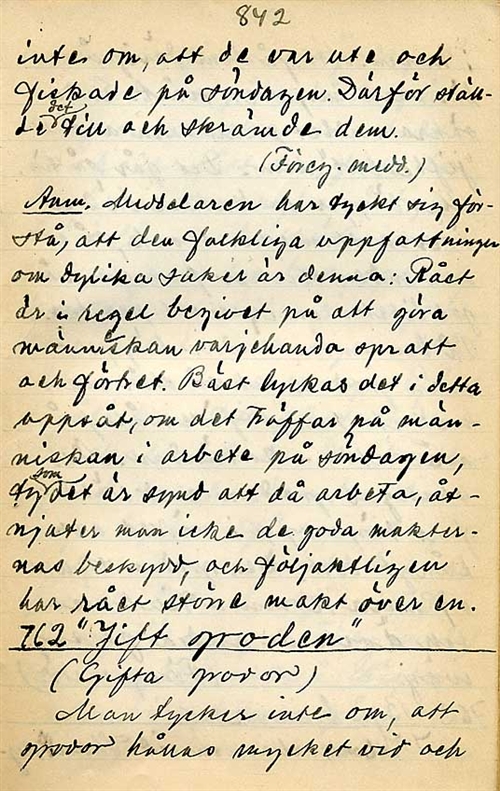 842
inte om, att de var ute och
fiskade på söndagen. Därför ställ-
de det till och skrämde dem.
(Föreg. medd.)
Anm. Meddelaren har tyckt sig för-
stå, att den folkliga uppfattningen
om dylika saker är denna: Rået
är i regel begivet på att göra
människan varjehanda spratt
och förtret. Bäst lyckas det i detta
uppsåt, om det träffar på män-
niskan i arbete på söndagen,
ty som det är synd att då arbeta, åt-
njuter man icke de goda makter-
nas beskydd, och följaktligen
har rået större makt över en.
762 "Gift groden"
(Gifta grodor)
Man tycker inte om, att
grodor hållas mycket vid och